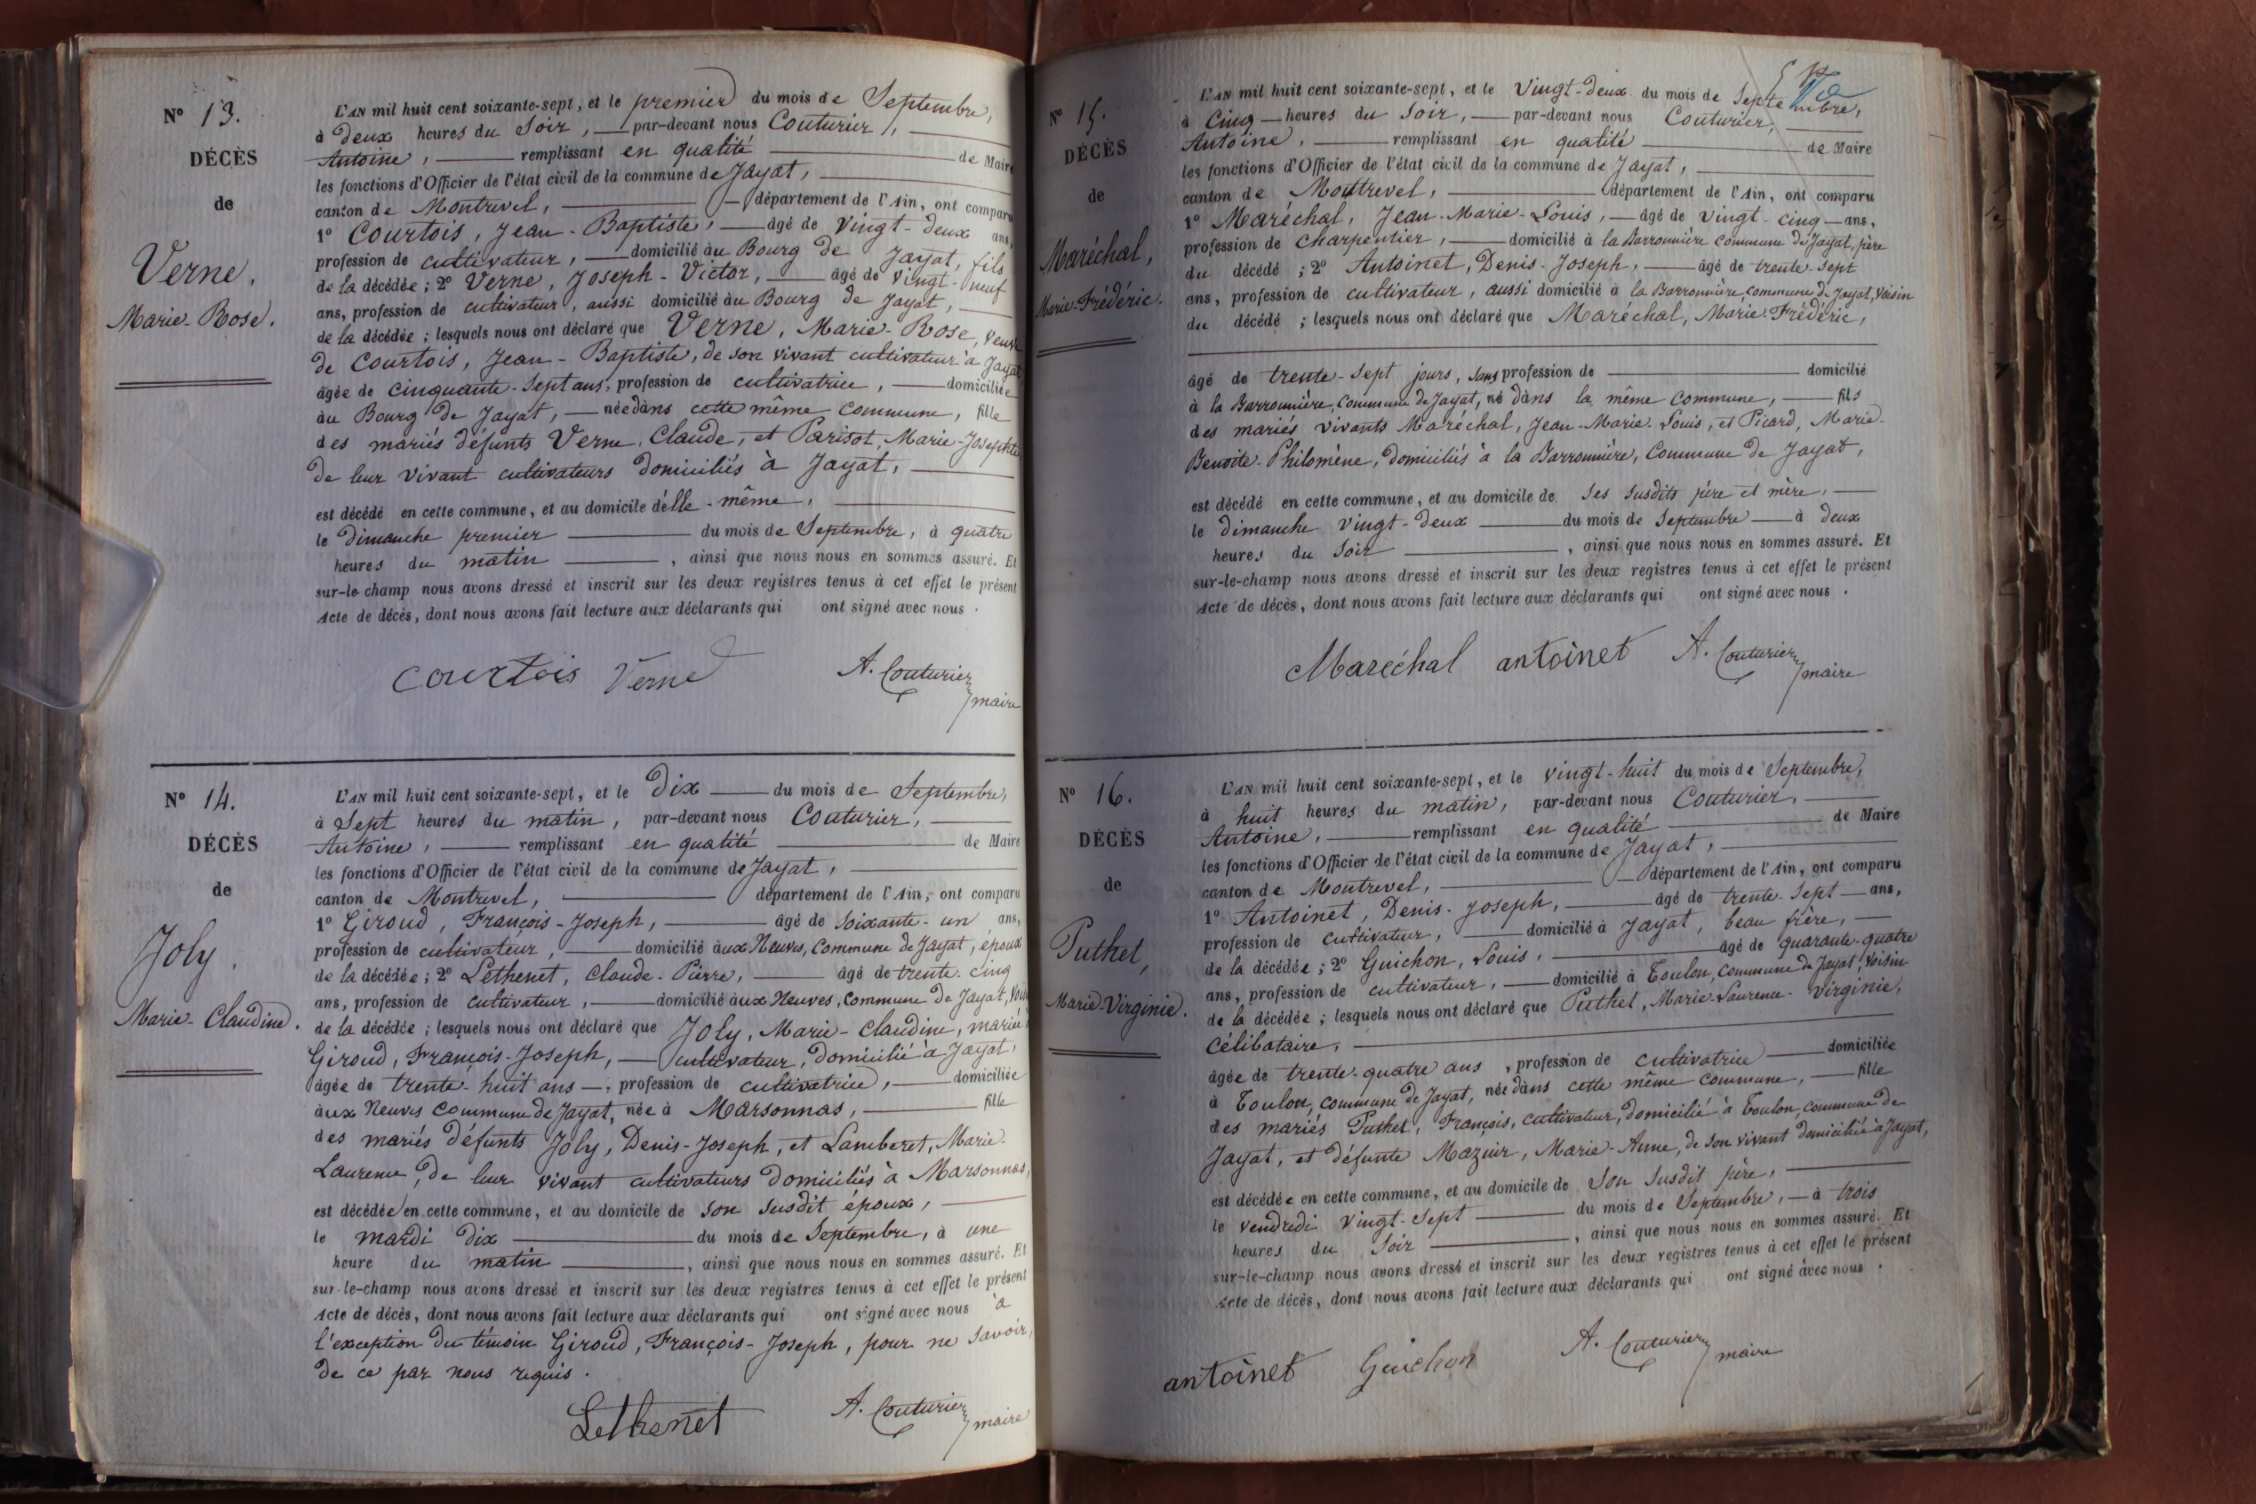 N° 13.
DÉCÈS
de
Verne,
Marie-Rose.
L'AN mil huit cent soixante-sept, et le premier du mois de Septembre,
à deux heures du Soir, par-devant nous Couturier,
Antoine, remplissant en qualité de Maire
les fonctions d'Officier de l'état civil de la commune de Jayat,
canton de Montrevel, département de l'Ain, ont comparu
1° Courtois, Jean-Baptiste, âgé de vingt-deux ans,
profession de cultivateur, domicilié au Bourg de Jayat, fils
de la décédée; 2° Verne, Joseph-Victor, âgé de vingt-neuf
ans, profession de cultivateur, aussi domicilié au Bourg de Jayat,
de la décédée; lesquels nous ont déclaré que Verne, Marie-Rose, veuve
de Courtois, Jean-Baptiste, de son vivant cultivateur à Jayat,
âgée de cinquante-sept ans, profession de cultivatrice, domiciliée
au Bourg de Jayat, née dans cette même commune, fille
des mariés défunts Verne, Claude, et Parisot, Marie-Josephte
de leur vivant cultivateurs domiciliés à Jayat,
est décédé en cette commune, et au domicile d'elle-même,
le dimanche premier du mois de Septembre, à quatre
heures du matin, ainsi que nous nous en sommes assuré. Et
sur-le-champ nous avons dressé et inscrit sur les deux registres tenus à cet effet le présent
Acte de décès, dont nous avons fait lecture aux déclarants qui ont signé avec nous.
Courtois Verne A. Couturier
maire
N° 14.
DÉCÈS
de
Joly,
Marie-Claudine.
L'AN mil huit cent soixante-sept, et le Dix du mois de Septembre,
à Sept heures du matin, par-devant nous Couturier,
Antoine, remplissant en qualité de Maire
les fonctions d'Officier de l'état civil de la commune de Jayat,
canton de Montrevel, département de l'Ain, ont comparu
1° Giroud, François-Joseph, âgé de soixante-un ans,
profession de cultivateur, domicilié aux Neuves, commune de Jayat, époux
de la décédée; 2° Lethenet, Claude-Pierre, âgé de trente-cinq
ans, profession de cultivateur, domicilié aux Neuves, commune de Jayat, voisin
de la décédée; lesquels nous ont déclaré que Joly, Marie-Claudine, mariée à
Giroud, François-Joseph, cultivateur, domicilié à Jayat,
âgée de trente-huit ans, profession de cultivatrice, domiciliée
aux Neuves commune de Jayat, née à Marsonnas, fille
des mariés défunts Joly, Denis-Joseph, et Lamberet, Marie-
Laurence, de leur vivant cultivateurs domiciliés à Marsonnas,
est décédée en cette commune, et au domicile de son susdit époux,
le mardi dix du mois de Septembre, à une
heure du matin, ainsi que nous nous en sommes assuré. Et
sur-le-champ nous avons dressé et inscrit sur les deux registres tenus à cet effet le présent
Acte de décès, dont nous avons fait lecture aux déclarants qui ont signé avec nous à
l'exception du témoin Giroud, François-Joseph, pour ne savoir,
de ce par nous requis.
Lethenet A. Couturier
maire
N° 15.
DÉCÈS
de
Maréchal,
Marie-Frédéric.
L'AN mil huit cent soixante-sept, et le vingt-deux du mois de Septembre,
à Cinq heures du Soir, par-devant nous Couturier,
Antoine, remplissant en qualité de Maire
les fonctions d'Officier de l'état civil de la commune de Jayat,
canton de Montrevel, département de l'Ain, ont comparu
1° Maréchal, Jean-Marie-Louis, âgé de vingt-cinq ans,
profession de charpentier, domicilié à la Barronnière commune de Jayat, père
du décédé; 2° Antoinet, Denis-Joseph, âgé de trente-sept
ans, profession de cultivateur, aussi domicilié à la Barronnière, commune de Jayat, voisin
du décédé; lesquels nous ont déclaré que Maréchal, Marie-Frédéric,
âgé de trente-sept jours, sans profession de domicilié
à la Barronnière, commune de Jayat, né dans la même commune, fils
des mariés vivants Maréchal, Jean-Marie-Louis, et Picard, Marie-
Benoite-Philomène, domiciliés à la Barronnière, Commune de Jayat,
est décédé en cette commune, et au domicile de ses susdits père et mère,
le dimanche vingt-deux du mois de Septembre à deux
heures du Soir, ainsi que nous nous en sommes assuré. Et
sur-le-champ nous avons dressé et inscrit sur les deux registres tenus à cet effet le présent
Acte de décès, dont nous avons fait lecture aux déclarants qui ont signé avec nous.
Maréchal antoinet A. Couturier
maire
N° 16.
DÉCÈS
de
Puthet,
Marie-Virginie.
L'AN mil huit cent soixante-sept, et le vingt-huit du mois de Septembre,
à huit heures du matin, par-devant nous Couturier,
Antoine, remplissant en qualité de Maire
les fonctions d'Officier de l'état civil de la commune de Jayat,
canton de Montrevel, département de l'Ain, ont comparu
1° Antoinet, Denis-Joseph, âgé de trente-sept ans,
profession de cultivateur, domicilié à Jayat, beau frère,
de la décédée; 2° Guichon, Louis, âgé de quarante-quatre
ans, profession de cultivateur, domicilié à Toulon, commune de Jayat, voisin
de la décédée; lesquels nous ont déclaré que Puthet, Marie-Laurence-Virginie,
Célibataire,
âgée de trente-quatre ans, profession de cultivatrice domiciliée
à Toulon, commune de Jayat, née dans cette même commune, fille
des mariés Puthet, François, cultivateur, domicilié à Toulon, commune de
Jayat, et défunte Mazuir, Marie-Anne, de son vivant domiciliée à Jayat,
est décédée en cette commune, et au domicile de son susdit père,
le vendredi vingt-sept du mois de Septembre, à trois
heures du Soir, ainsi que nous nous en sommes assuré. Et
sur-le-champ nous avons dressé et inscrit sur les deux registres tenus à cet effet le présent
Acte de décès, dont nous avons fait lecture aux déclarants qui ont signé avec nous.
antoinet Guichon A. Couturier
maire